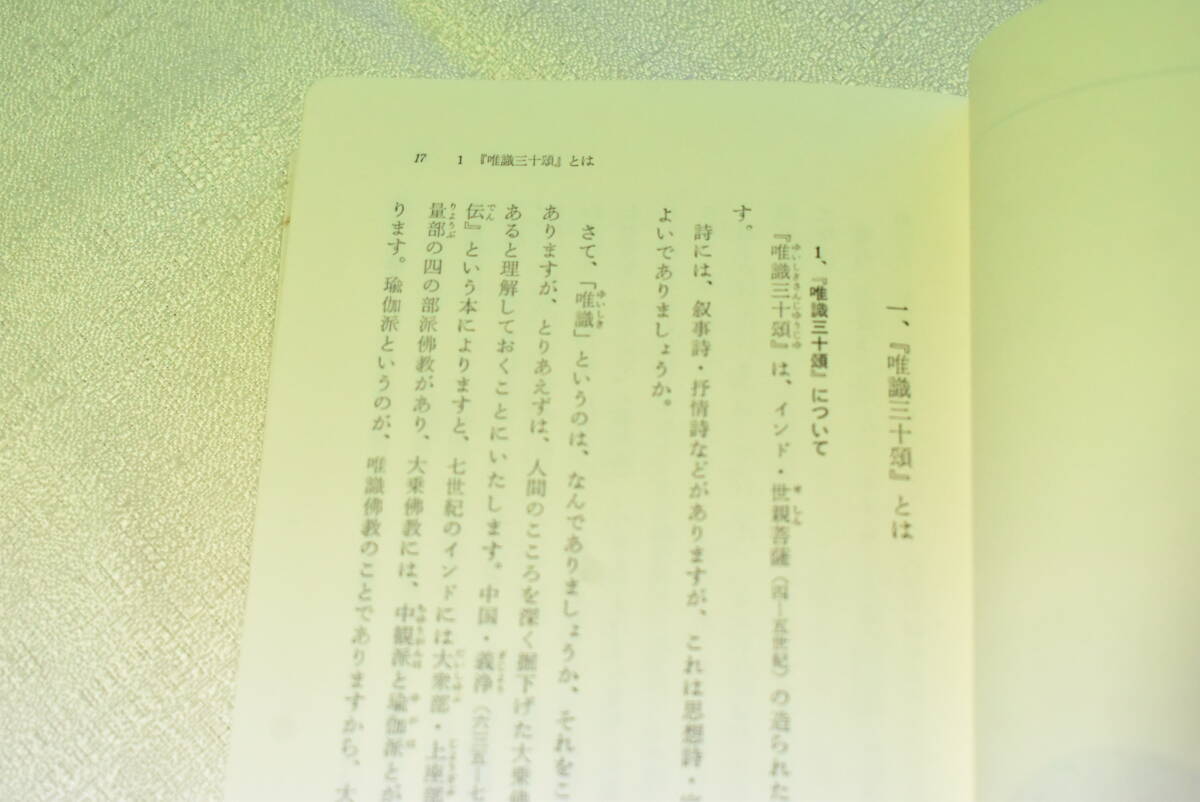 17　1　『唯識三十頌』とは
一、『唯識三十頌』とは
1、『唯識三十頌』について
『唯識三十頌』は、インド・世親菩薩（四―五世紀）の造られた
す。
詩には、叙事詩・抒情詩などがありますが、これは思想詩・
よいでありましょうか。
さて、「唯識」というのは、なんでありましょうか、それをこ
ありますが、とりあえずは、人間のこころを深く掘下げた大乗佛
あると理解しておくことにいたします。中国・義浄（六三五―七
伝』という本によりますと、七世紀のインドには大衆部・上座部
量部の四の部派佛教があり、大乗佛教には、中観派と瑜伽派とが
ります。瑜伽派というのが、唯識佛教のことでありますから、大